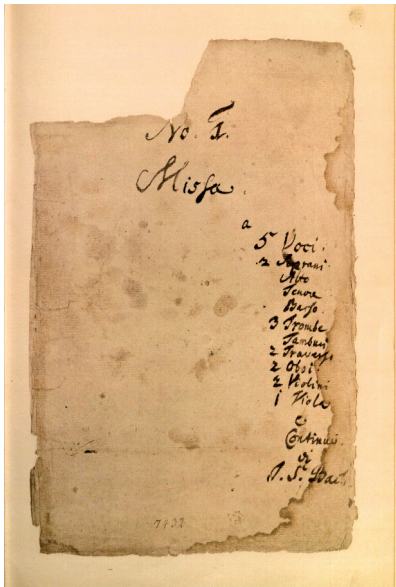 No. I.
Missa.
a
5 Voci.
2 Soprani.
Alto
Tenore
Basso.
3 Trombe
Tamburi
2 Travers
2 Oboi.
2 Violini
1 Viola
e
Continuo.
di
J. S. Bach.
7432